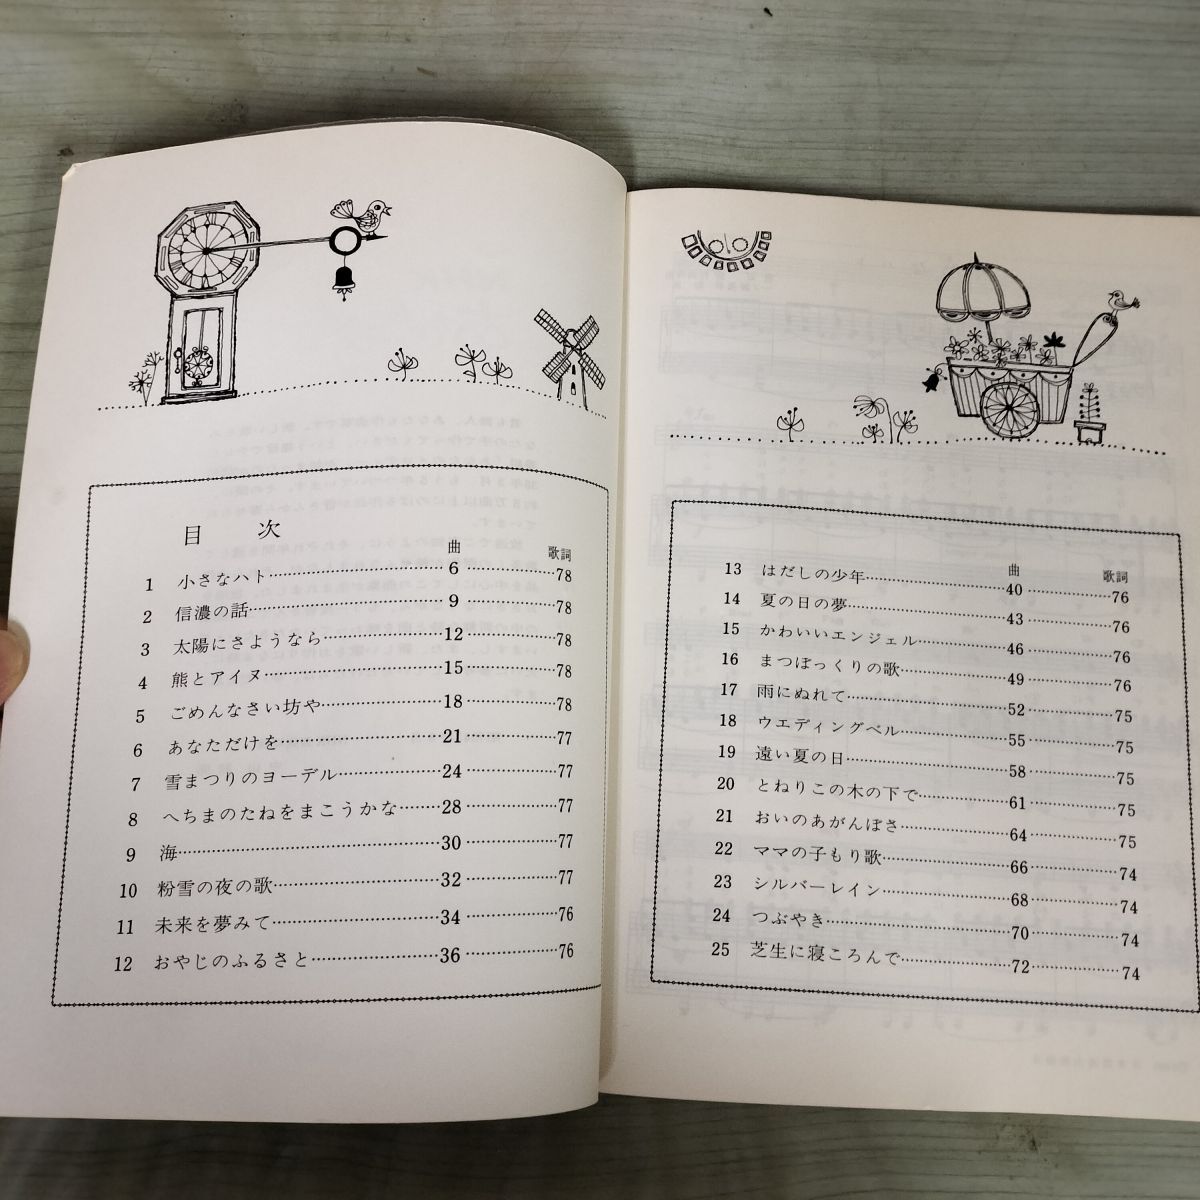 目次
曲 歌詞
1 小さなハト 6 78
2 信濃の話 9 78
3 太陽にさようなら 12 78
4 熊とアイヌ 15 78
5 ごめんなさい坊や 18 78
6 あなただけを 21 77
7 雪まつりのヨーデル 24 77
8 へちまのたねをまこうかな 28 77
9 海 30 77
10 粉雪の夜の歌 32 77
11 未来を夢みて 34 76
12 おやじのふるさと 36 76
曲 歌詞
13 はだしの少年 40 76
14 夏の日の夢 43 76
15 かわいいエンジェル 46 76
16 まつぼっくりの歌 49 76
17 雨にぬれて 52 75
18 ウエディングベル 55 75
19 遠い夏の日 58 75
20 とねりこの木の下で 61 75
21 おいのあがんぼさ 64 75
22 ママの子もり歌 66 74
23 シルバーレイン 68 74
24 つぶやき 70 74
25 芝生に寝ころんで 72 74